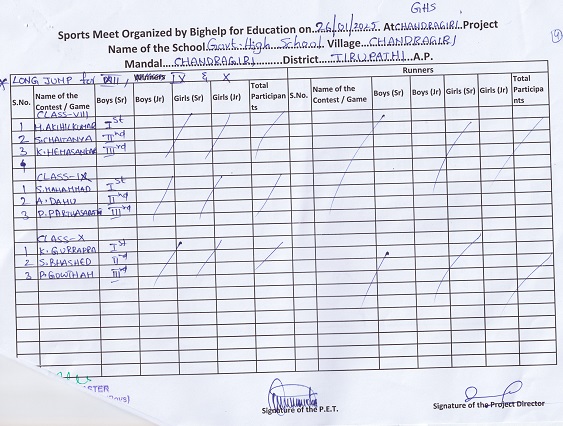 GHS
Sports Meet Organized by Bighelp for Education on 26/01/2025. At CHANDRAGIRI Project
Name of the School Govt. High School Village CHANDRAGIRI
Mandal CHANDRAGIRI District TIRUPATHI A.P.
LONG JUMP for VIII, IX & X
Winners
Runners
S.No. Name of the Contest / Game Boys (Sr) Boys (Jr) Girls (Sr) Girls (Jr) Total Participants S.No. Name of the Contest / Game Boys (Sr) Boys (Jr) Girls (Sr) Girls (Jr) Total Participants
CLASS-VIII
1 H.AKHILKUMAR Ist
2 S.CHAITANYA IInd
3 K.HEMASANKAR IIIrd
4
CLASS-IX
1 S.MAHAMMAD Ist
2 A. IInd
3 D.PARTHASARATHI IIIrd
CLASS-X
1 K.GURRAPPA Ist
2 S.RHASHED IInd
3 P.GOWTHAM IIIrd
Signature of the P.E.T.
Signature of the Project Director